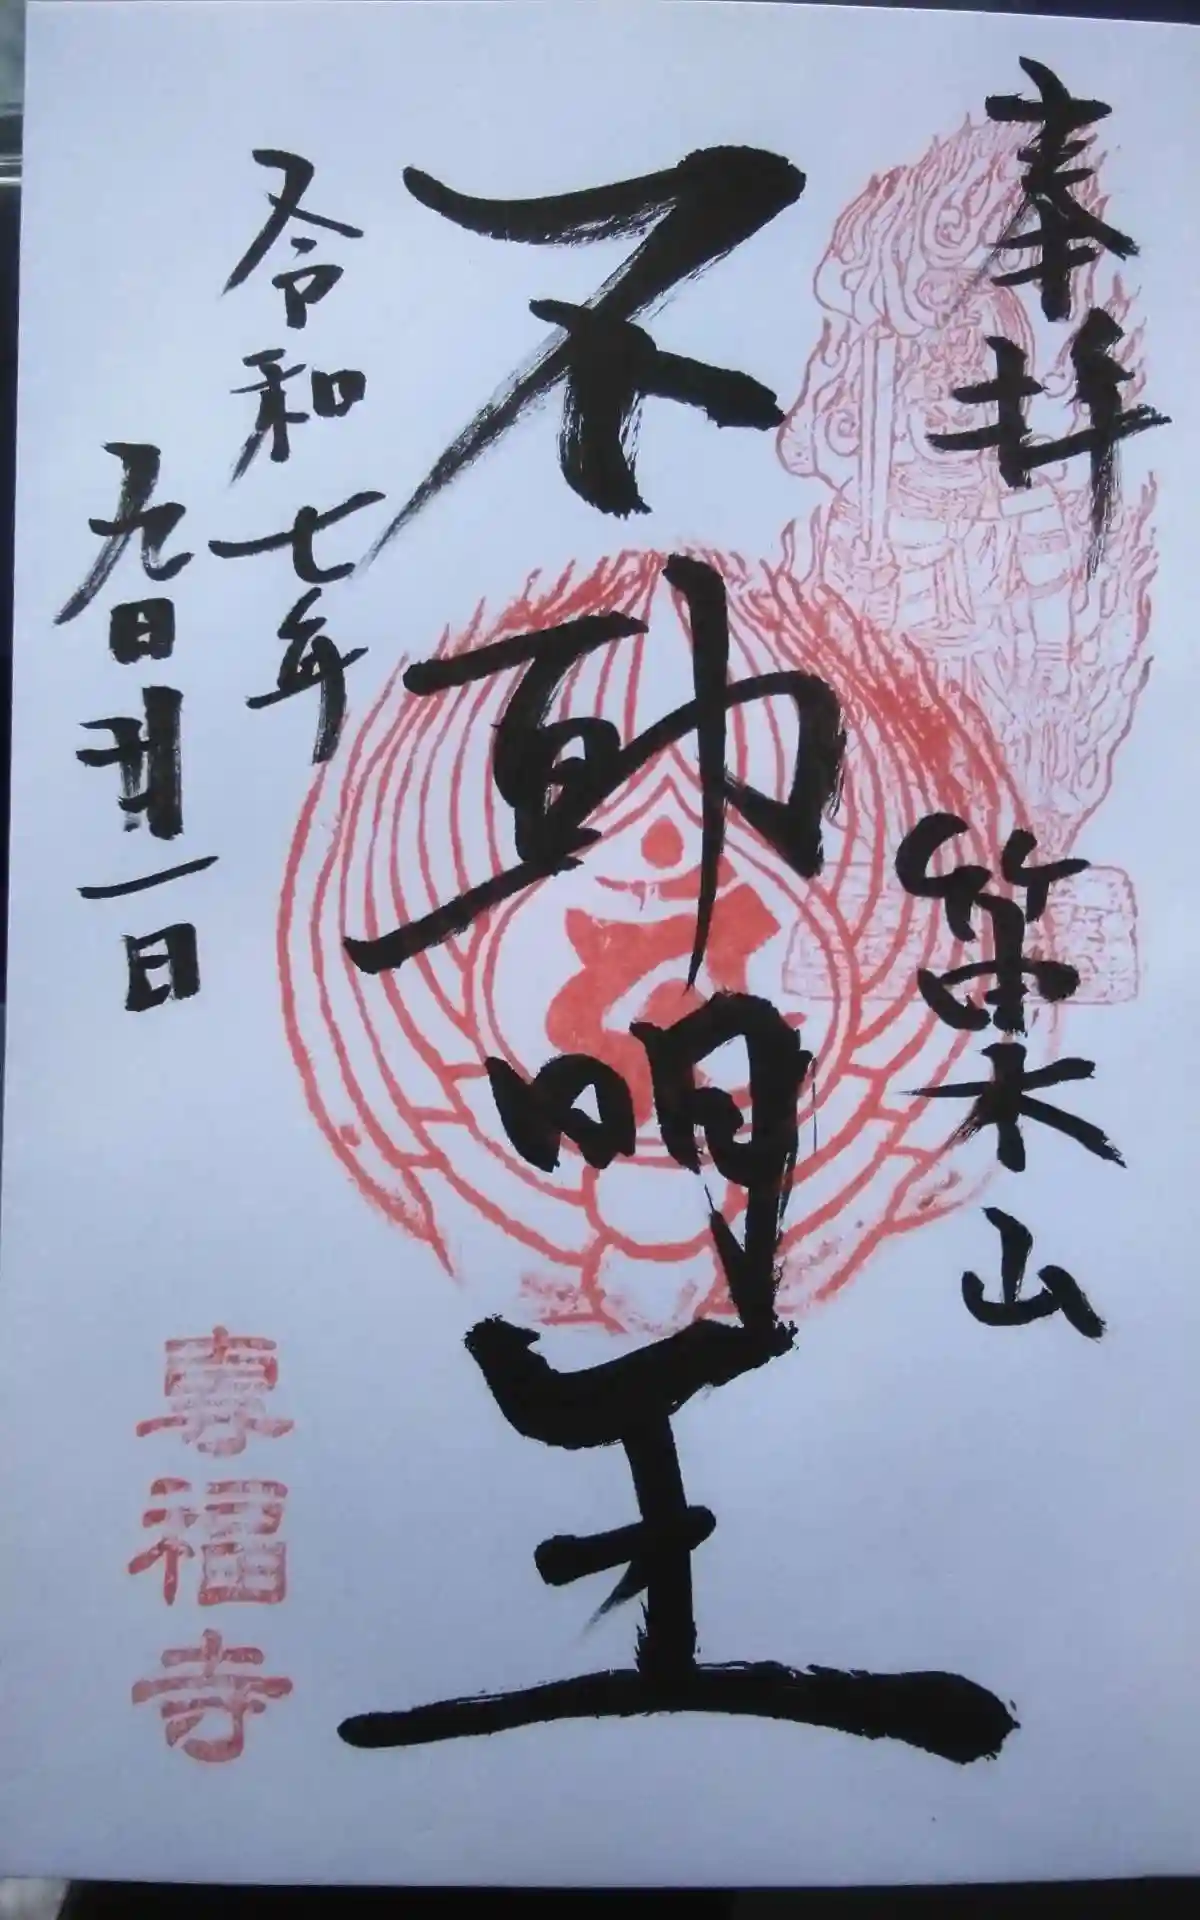 奉拝 笛木山
不動明王
令和七年
九日月一日
壽福寺